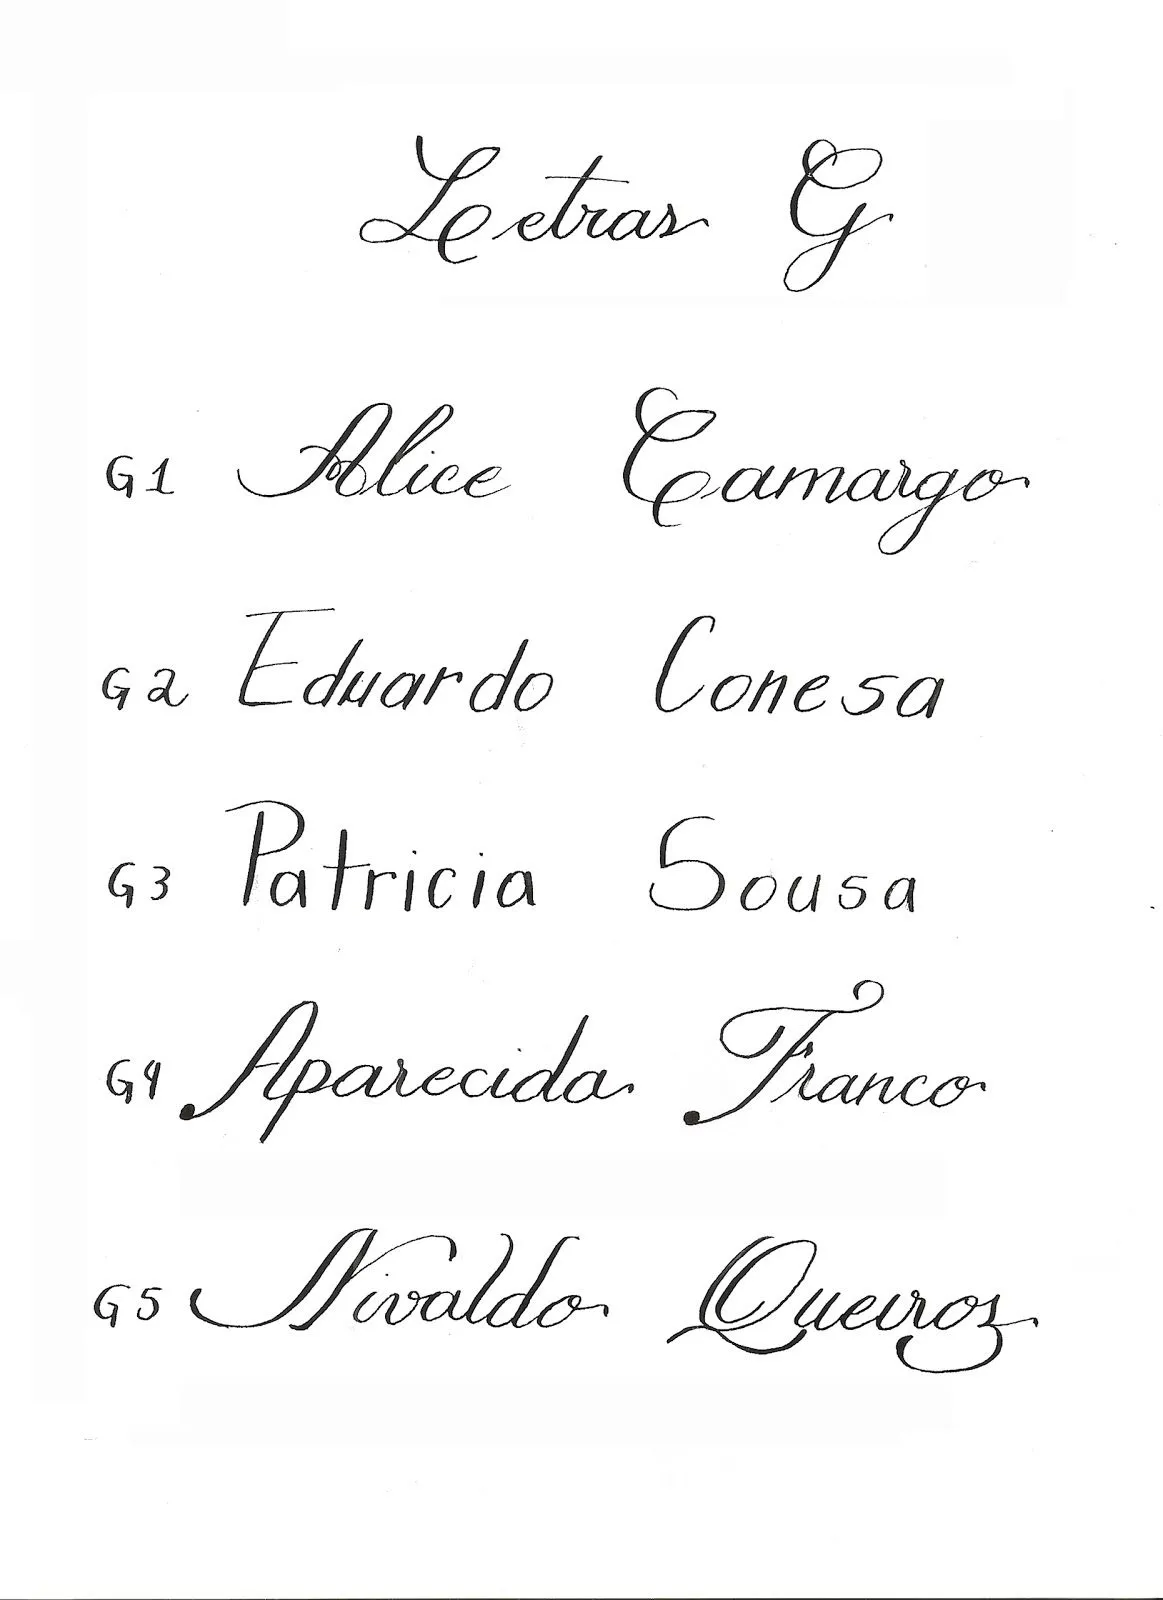 Letras G
G1 Alice Camargo
G2 Eduardo Conesa
G3 Patricia Sousa
G4 Aparecida Franco
G5 Nivaldo Queiroz